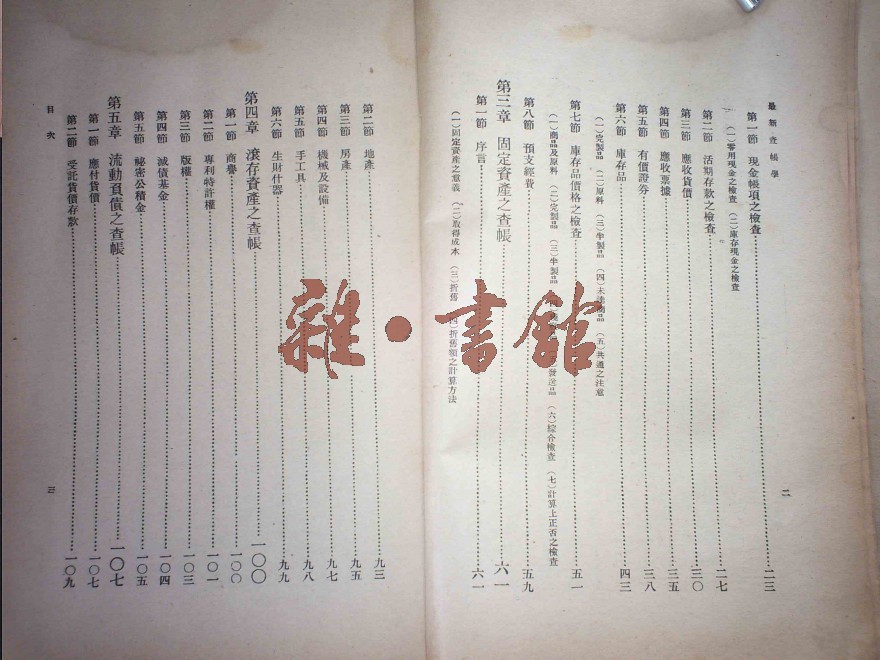 最新查帳學
第一節 現金帳項之檢查 二三
(一)零用現金之檢查 (二)庫存現金之檢查
第二節 活期存款之檢查 二七
第三節 應收貨價 三〇
第四節 應收票據 三五
第五節 有價證券 三八
第六節 庫存品 四三
(一)完製品 (二)原料 (三)半製品 (四)未達商品 (五)共通之注意
第七節 庫存品價格之檢查 五一
(一)商品及原料 (二)完製品 (三)半製品 發送品 (六)綜合檢查 (七)計算上正否之檢查
第八節 預支經費 五九
第三章 固定資產之查帳 六一
第一節 序言 六一
(一)固定資產之意義 (二)取得成本 (三)折舊 (四)折舊額之計算方法
二
第二節 地產 九三
第三節 房產 九五
第四節 機械及設備 九七
第五節 手工具 九八
第六節 生財什器 九九
第四章 滾存資產之查帳 一〇〇
第一節 商譽 一〇〇
第二節 專利特許權 一〇一
第三節 版權 一〇三
第四節 減債基金 一〇四
第五節 祕密公積金 一〇五
第五章 流動負債之查帳 一〇七
第一節 應付貨價 一〇七
第二節 受託貨價存款 一〇九
目次
三
雜·書館